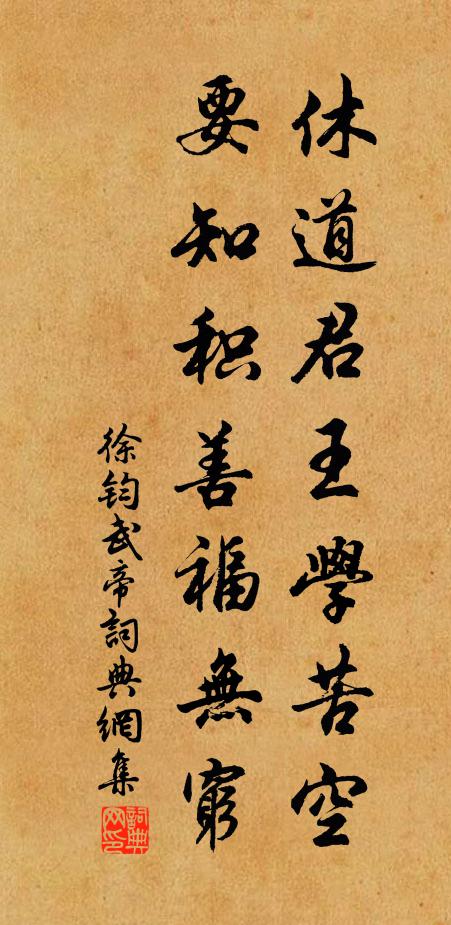 休道君王學苦空
要知积善福無窮
徐鈞武帝詞典網集
詞典网印